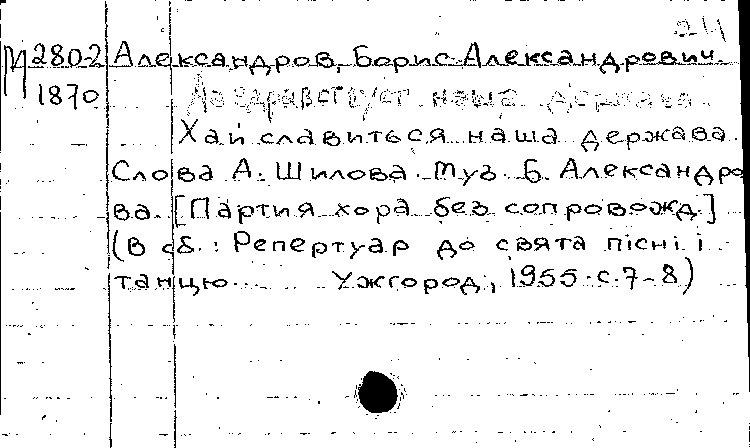 24
М2802 Александров, Борис Александрович.
1870 Да здравствует наша держава.
Хай славиться наша держава.
Слова А. Шилова. Муз. Б. Александро
ва. [Партия хора без сопровожд.]
(В сб.: Репертуар до свята пісні і
танцю. Ужгород, 1955. с. 7-8)